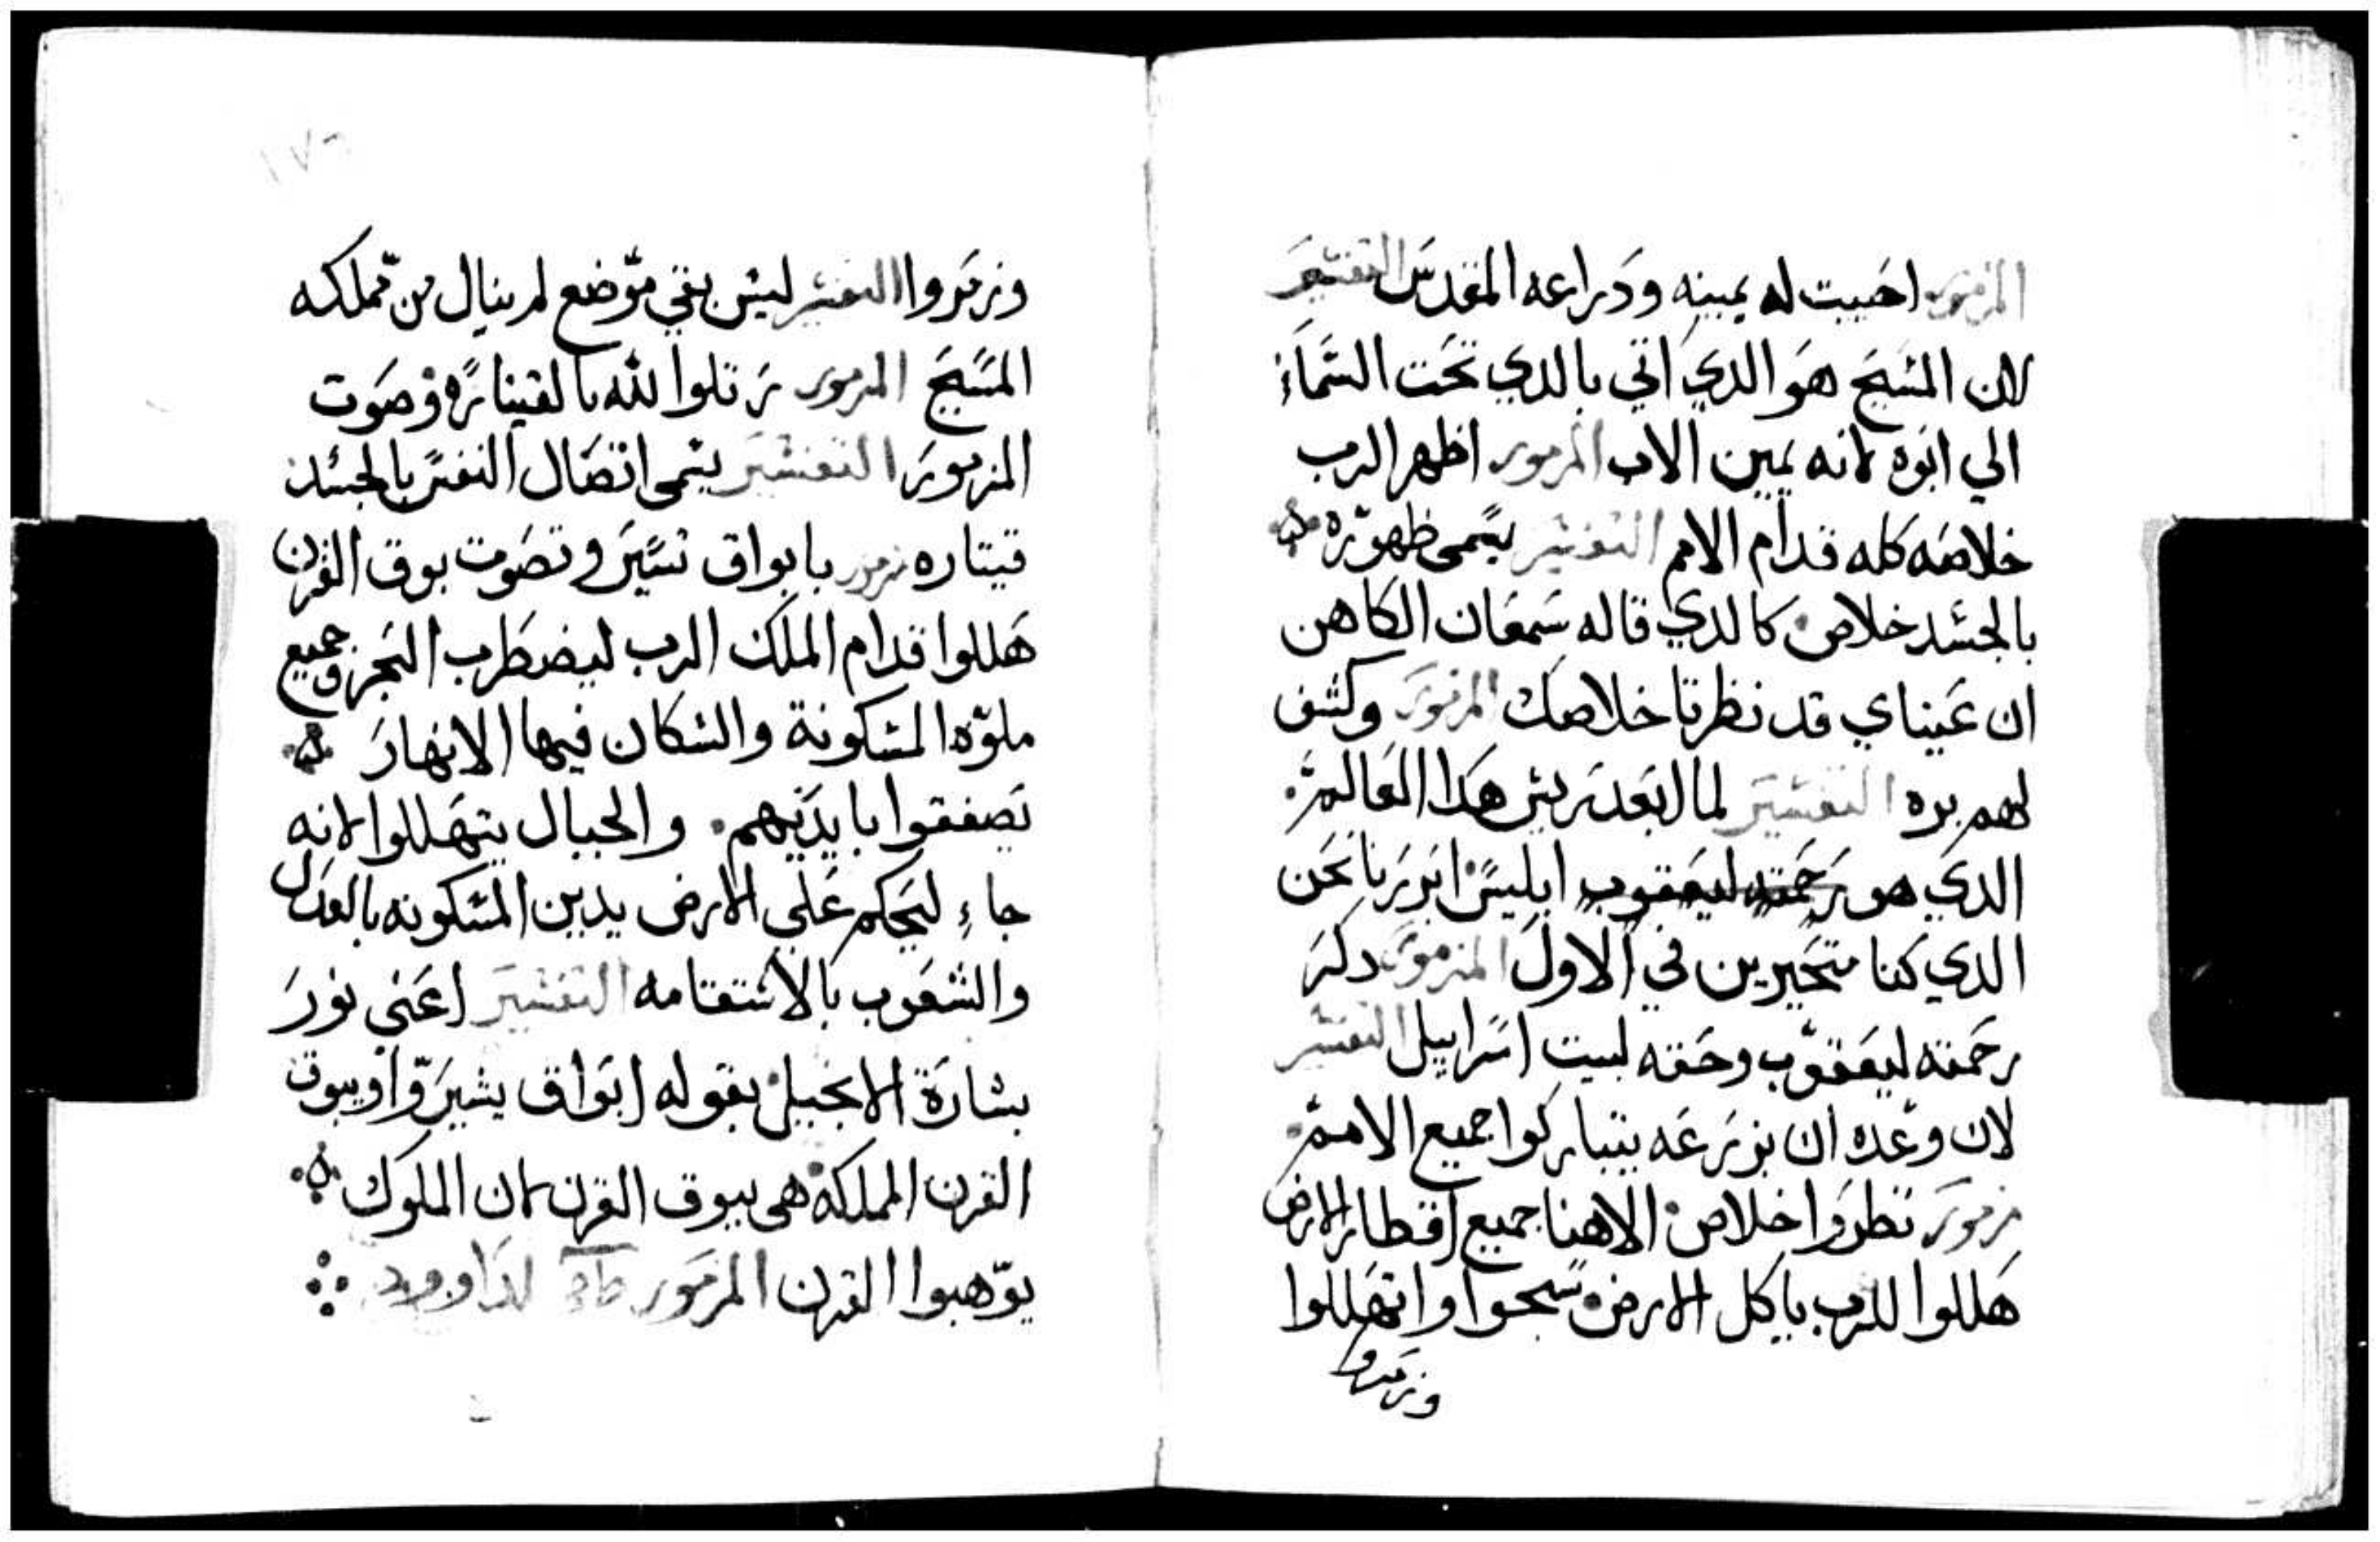 المزمور احييت له يمينه ودراعه المقدس التفسير
لان المسيح هو الدي اتي بالدي تحت السماء
الي ابوه لانه يمين الاب المزمور اظهر الرب
خلاصه كله قدام الامم التفسير يسمى ظهوره
بالجسد خلاص كالدي قاله سمعان الكاهن
ان عيناي قد نظرتا خلاصك المزمور وكشف
لهم بره التفسير لما ابعد ريس هدا العالم
الدي هو رحمته ليعقوب ابليس ابررنا نحن
الدي كنا متحيرين في الاول المزمور دكر
رحمته ليعقوب وحقه لبيت اسراييل التفسير
لان وعده ان بزرعه يتباركوا جميع الامم
مزمور نظروا خلاص الاهنا جميع اقطار الارض
هللوا للرب ياكل الارض سبحوا واتهللوا
وزمروا
١٧٦
وزمروا التفسير ليس بقي موضع لم ينال من مملكه
المسيح المزمور رتلوا لله بالقيتاره وصوت
المزمور التفسير يسمى اتصال النفس بالجسد
قيتاره مزمور بابواق تسير وتصوت بوق القرن
هللوا قدام الملك الرب ليضطرب البحر وجميع
ملوه المسكونة والسكان فيها الانهار
تصفقوا بايديهم والجبال يتهللوا لانه
جاء ليحكم علي الارض يدين المسكونه بالعدل
والشعوب بالاستقامه التفسير اعني نور
بشارة الانجيل بقوله ابواق يشيروا وببوق
القرن المملكة هي ببوق القرن لان الملوك
يوهبوا القرن المزمور لداوود